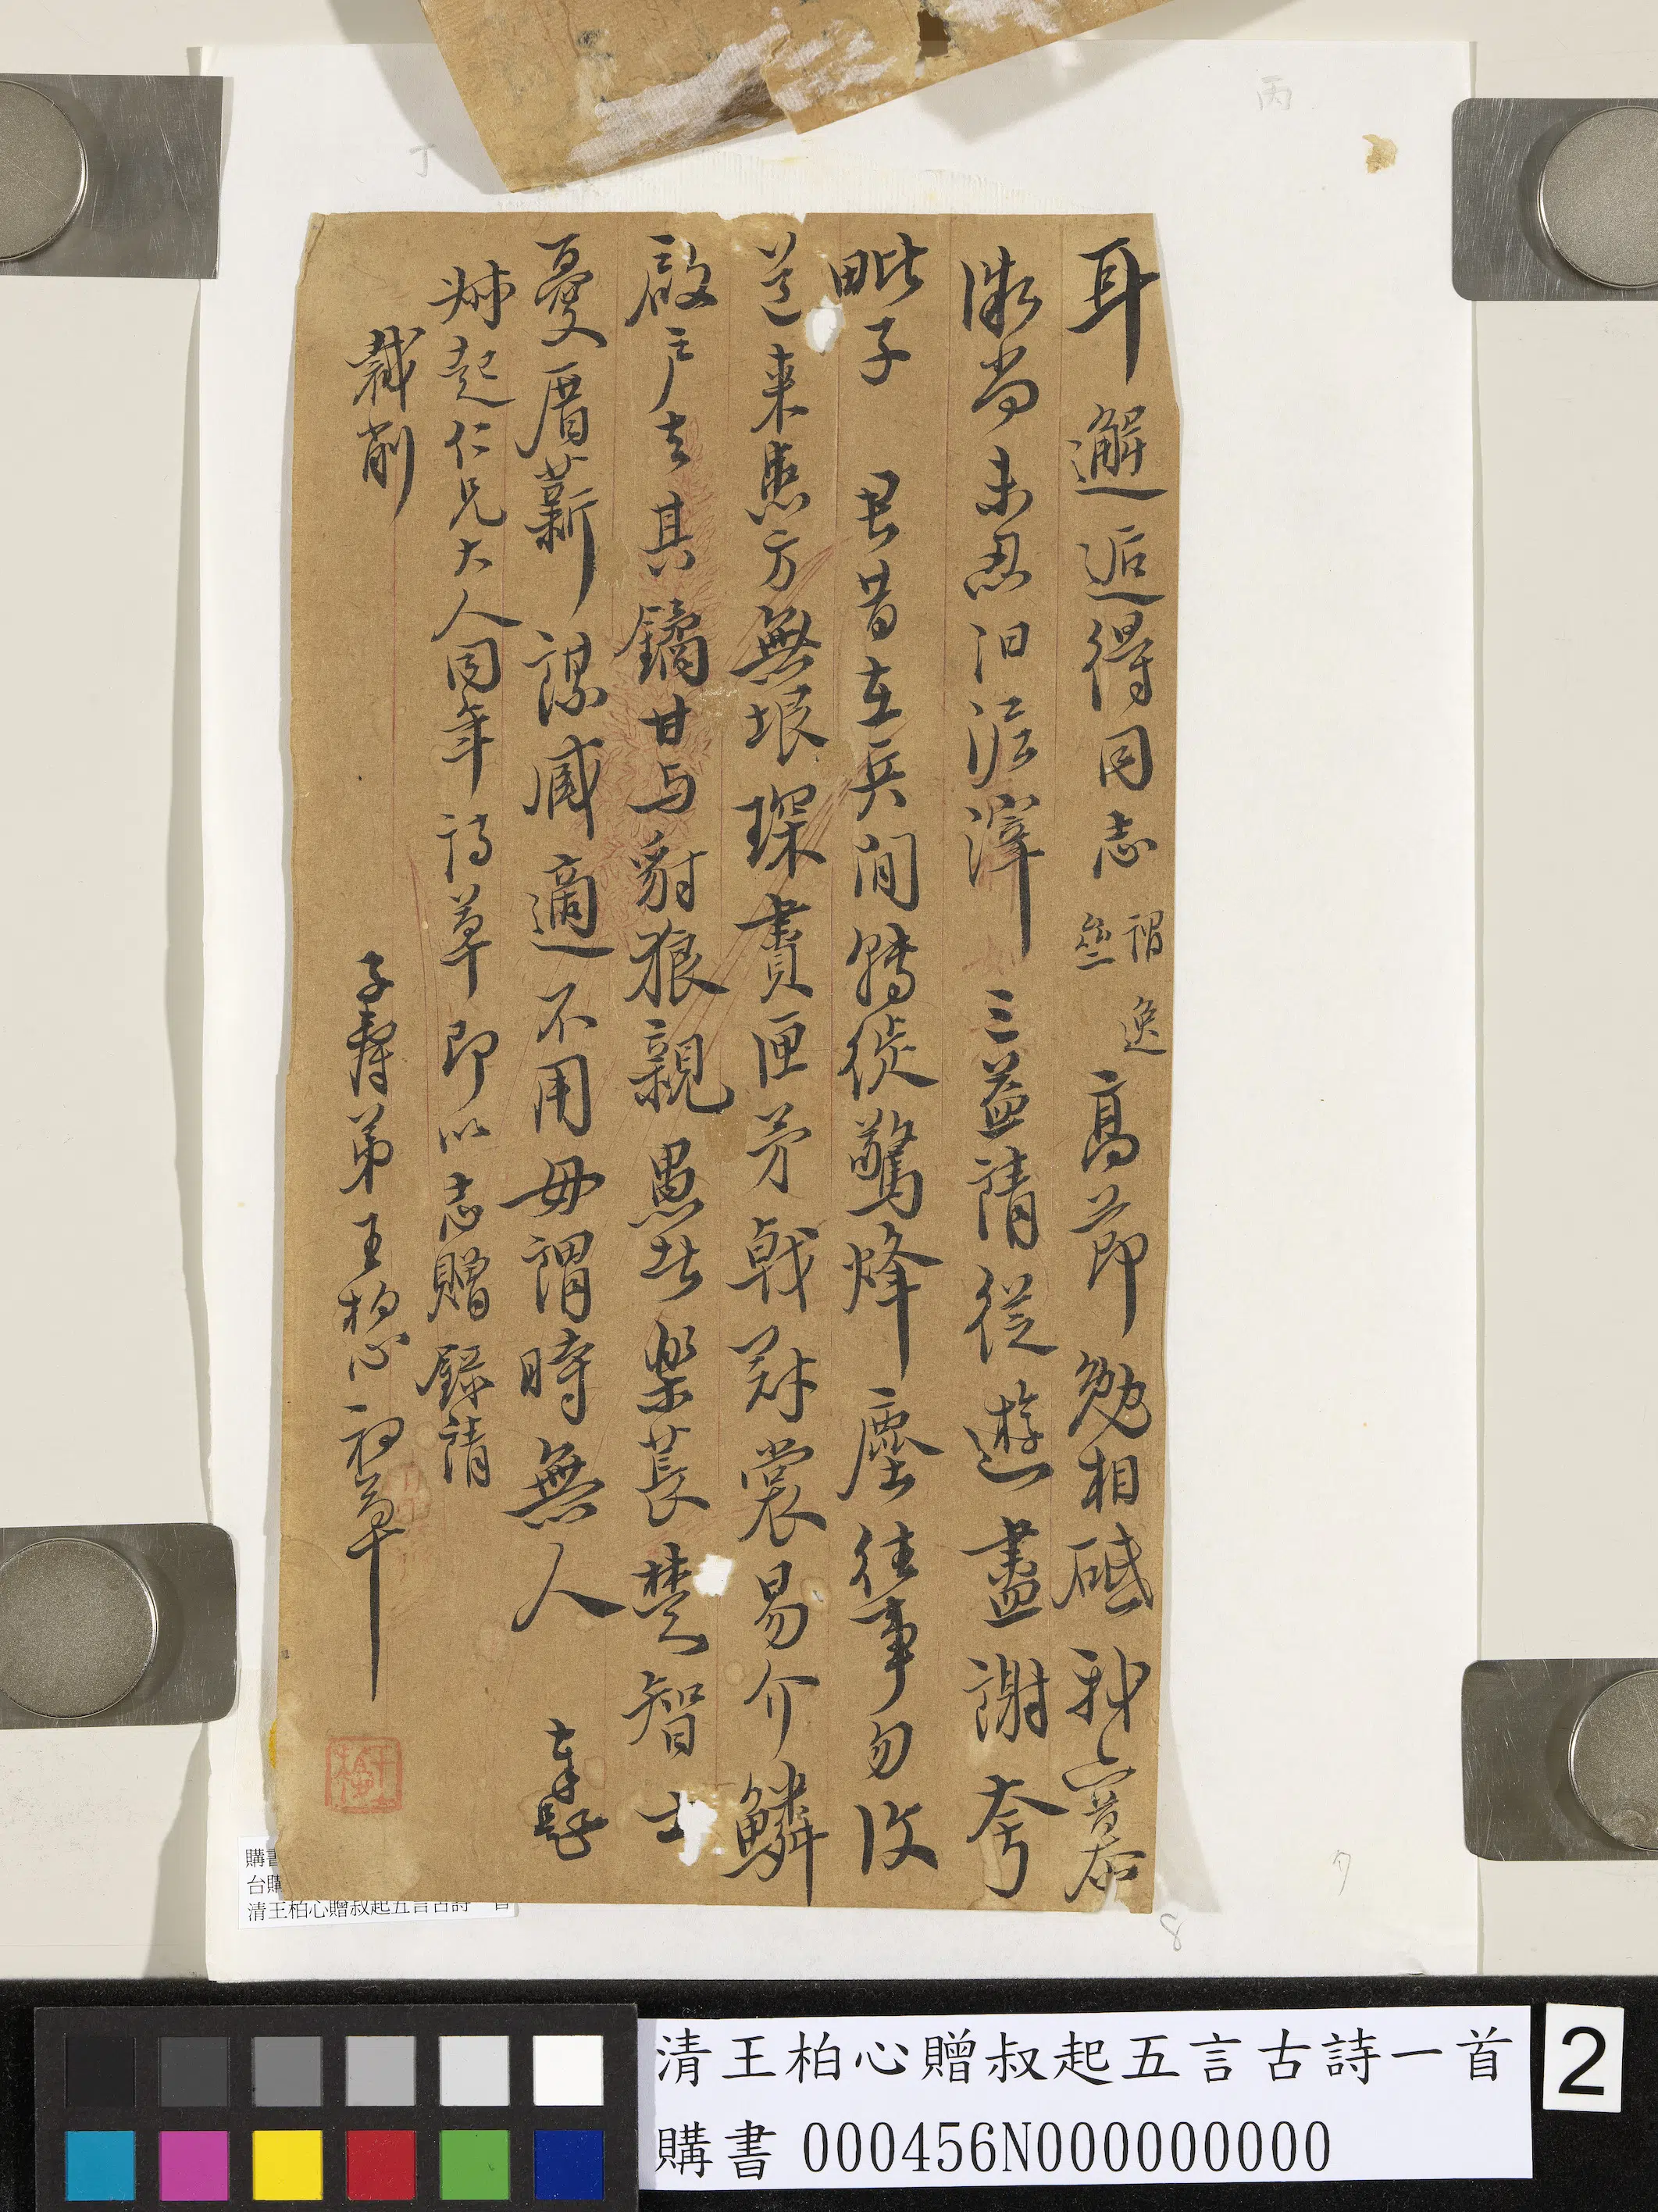 耳邂逅得同志謂逸
垒高節勉相砥永慕
漁尚未忍汨泥滓三益請從遊盡謝夸
毗子 君昔在兵間轉徙驚烽塵往事勿復
道來患方無垠琛賮匣矛戟冠裳易介鱗
啟戶去其鐍甘与豺狼親愚者樂萇楚智士
憂厝薪謀臧適不用毋謂時無人
叔起仁兄大人同年詩草即以志贈錄請
裁削
子壽弟王柏心初草
丁
丙
8
購書
台購
清王柏心贈叔起五言古詩一首
清王柏心贈叔起五言古詩一首
購書 000456N000000000
2